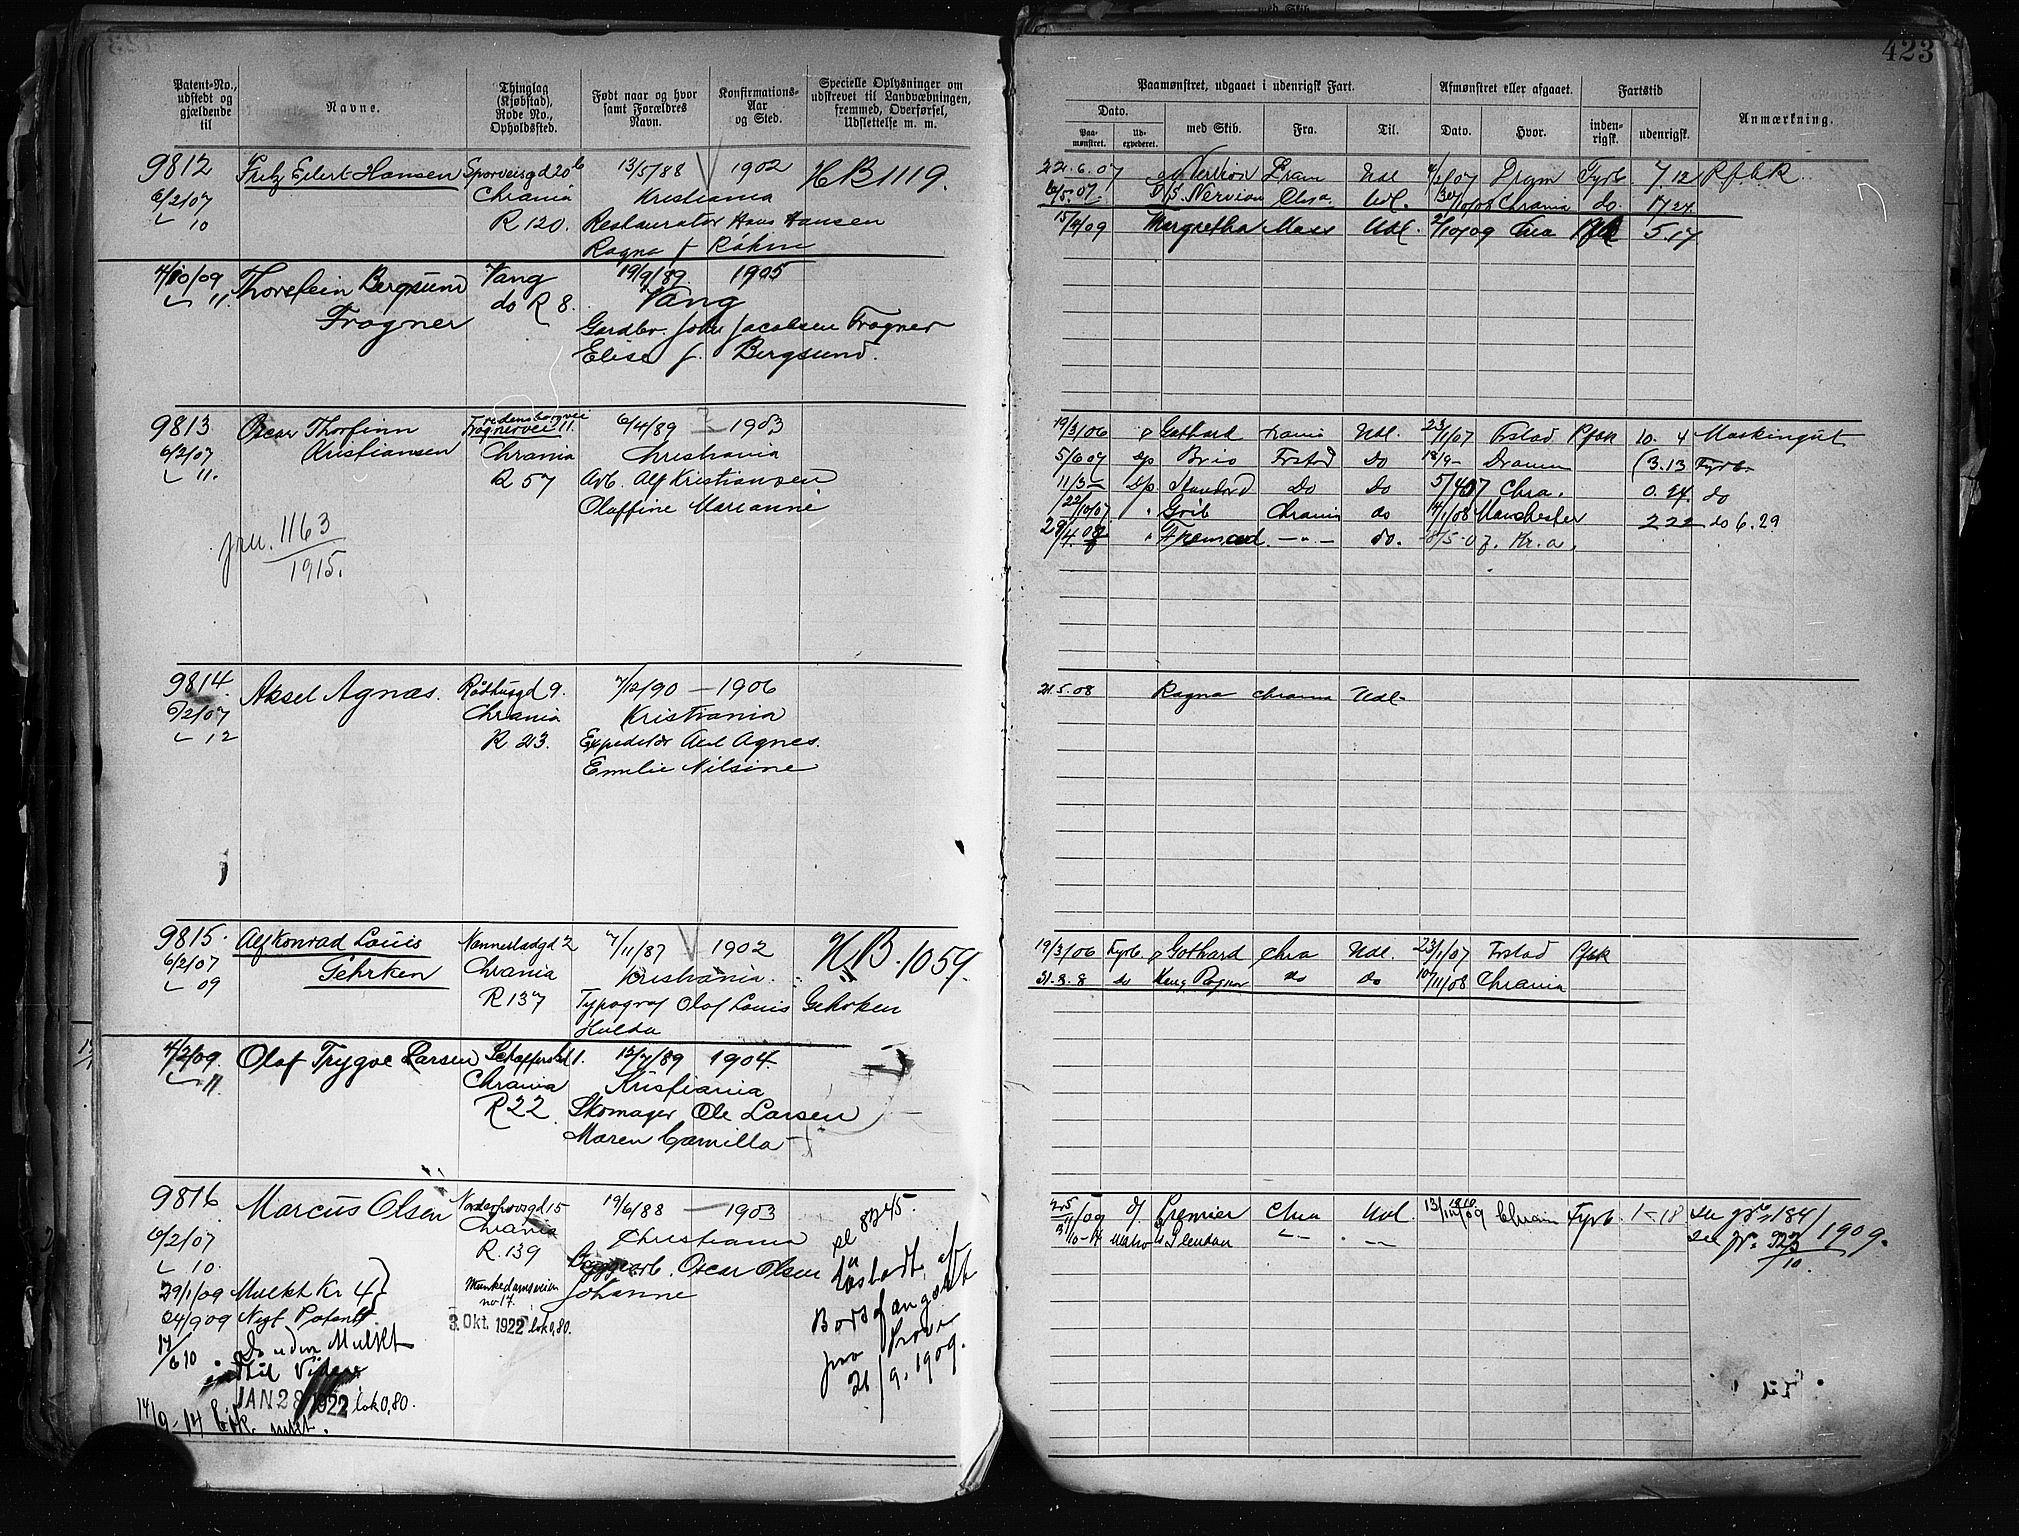 423
Patent-No., udstedt og gjældende til
Navne.
Thinglag (Kjøbstad), Rode No., Opholdssted.
Født naar og hvor samt Forældres Navn.
Konfirmations-Aar og Sted.
Specielle Oplysninger om udskrevet til Landværningen, fremmed, Overførsel, Udslettelse m. m.
Paamønstret, udgaaet i udenrigsk Fart.
Afmønstret eller afgaaet.
Fartstid
Anmærkning.
Dato.
Paa-mønstret.
Ud-expederet.
med Skib.
Fra.
Til.
Dato.
Hvor.
inden-rigsk.
udenrigsk.
9812 Fritz Eilert Hansen Sporveisgd 20 b 13/5/88 1902 HB 1119.
6/2/07 Chrania Kristiania
" 10 R 120. Restauratør Hans Hansen
Ragna f Röhme
22.6.07 Dram Udl 07 Dram Fyrb. 7.12 Pfbk
6/5.07. D/S. Nervion Chra Udl. Chrania do. 17 24
15/4/09 Margretha Moss Udl. 2/10/09 Chra 5.17
4/10/09 Thorstein Bergsund Vang 19/9/89 1905
" 11. Frogner do R 8. Vang
Gardbr. John Jacobsen Frogner
Elise f. Bergsund.
9813 Oscar Thorfinn Fredensborgvei 11. 6/4/89 1903
Frognervei
6/2/07 Kristiansen Chrania Christiania
" 11. R 57 Arb. Alf Kristiansen
Olaffine Marianne
jru. 1163
1915.
19/3/06 Gothard Crania Udl. 23/1/07 Frstad Pfbk 10. 4 Maskingut
5/6 07 D/s Brio Frstad Do 18/9 - Dramm (3.13 Fyrb.
11/3 - D/s Standard Do Do 5/4 07 Chra. 0. 24. do
22/10/07 " Grib Chrania do 1/08 Manchester 2 22 do 6.29
29/4.08 " Fremad. - " - do. Kr.a.
9814. Aksel Agnæs. Rådhusgd 9. 7/12/90 - 1906
6/2/07 Chrania Kristiania
" 12 R 23. Expeditør Axel Agnes.
Emilie Nilsine
21.5.08 Ragna Chrania Udl.
9815. Alf Konrad Louis Nannestadgd 2 7/11/87 1902 H.B. 1059.
6/2/07 Gehrken Chrania Kristiania.
" 09 R 137 Typograf Olaf Louis Gehrken
Hulda
19/3/06 Fyrb Gothard Chra Udl. 23/1/07 Frstad Pfbk
21.3.8 do Kong Ragnar do Do 10/11/08 Chrania
4/2/09. Olaf Trygve Larsen 1. 12/7/89 1904.
" 11. Chrania Kristiania
R 22 Skomager Ole Larsen
Maren Camilla
9816 Marcus Olsen Norderhovsgd 15 19/6/88 - 1903
6/2/07 Chrania Christiania
" 10. R. 139 Oscar Olsen
Johanne
29/1/09 Mulkt Kr 4 Munkedamsveien
no 17.
24/9 09 Nyt Patent
3. Okt. 1922 bok 0,80.
17/6 10. Do uden Mulkt
indtil Videre
JAN 28 1922 bok 0,80.
14/9-14
pl 8245.
1909.
11/09 Premier Chra Udl. 13/09 Chrani Fyrb 1 - 18 se jr. 184/1909.
Matro se jr. 323
10.